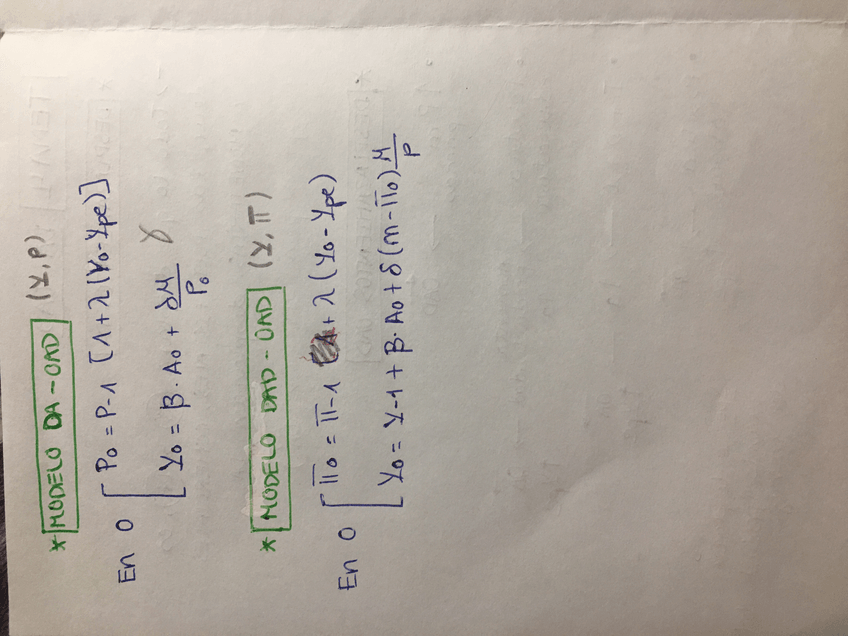 * MODELO DA-OAD (Y,P)
En 0 [ P₀ = P-1 [1+λ(Y₀-Ype)]
Y₀ = β·A₀ + γM/P₀ γ
* MODELO DAD-OAD (Y,π)
En 0 [ π₀ = π-1 + λ(Y₀-Ype)
Y₀ = Y-1 + β·A₀ + δ(m-π₀) M/P